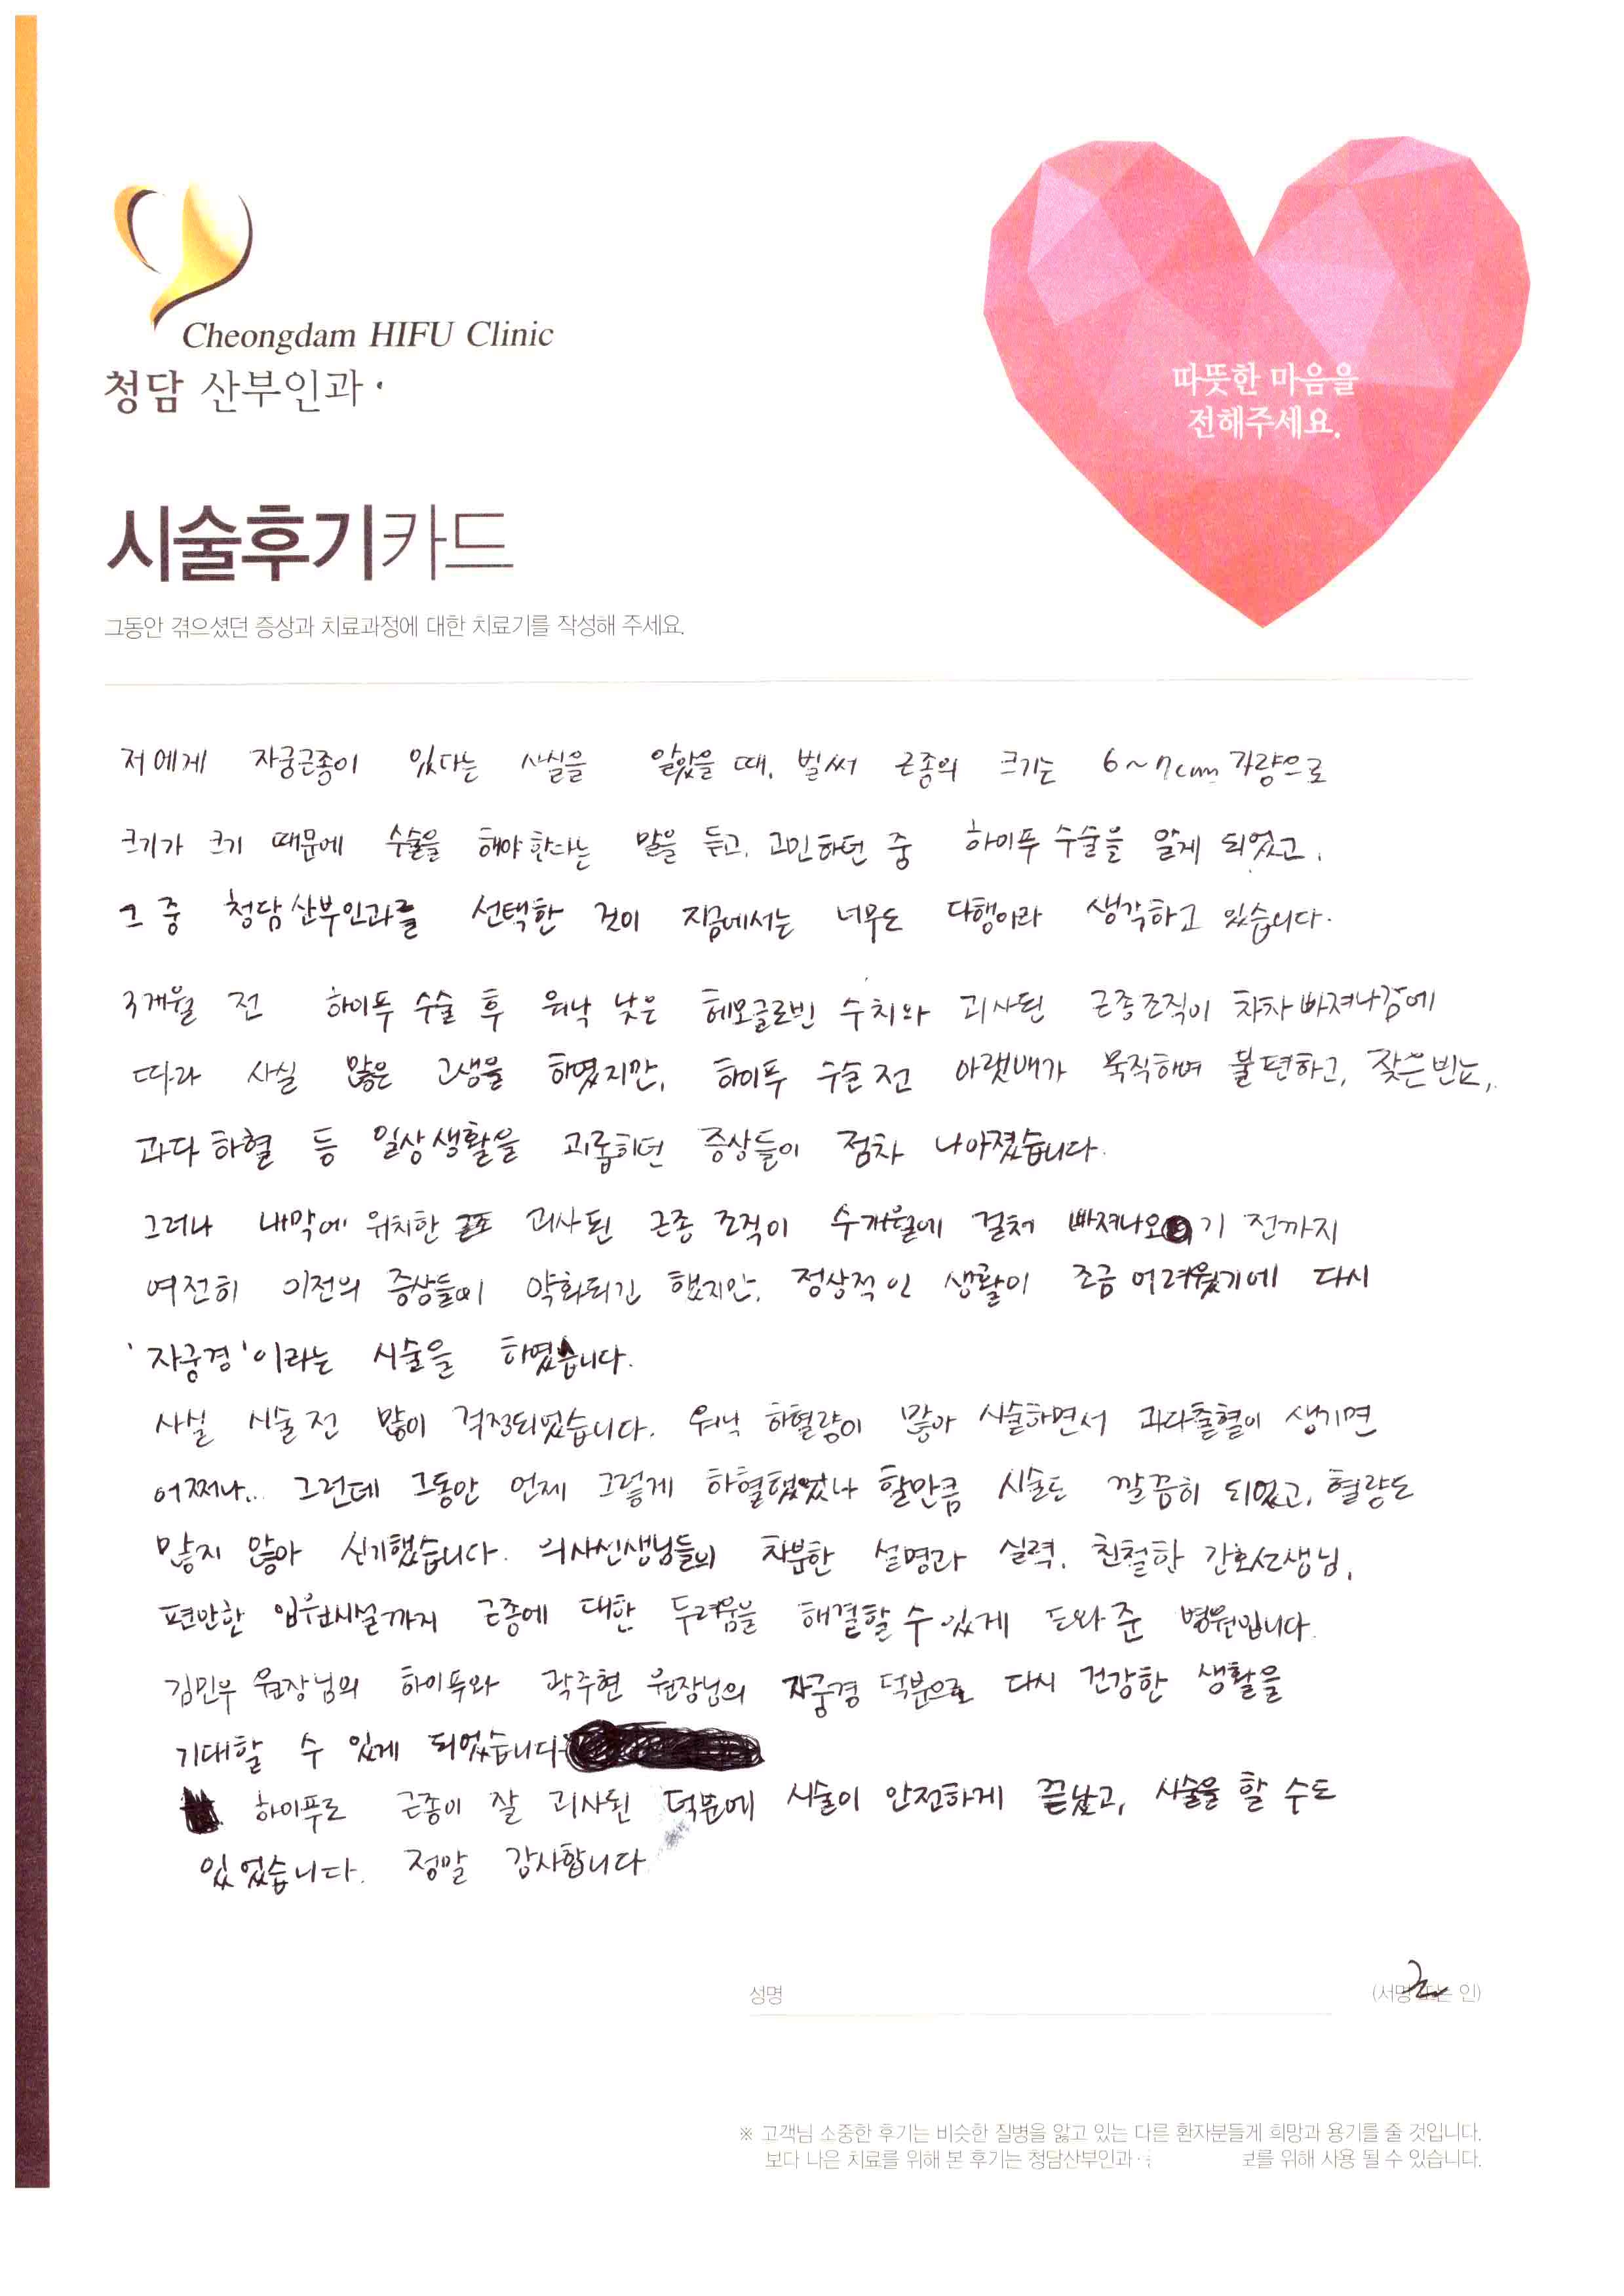 Cheongdam HIFU Clinic
청담 산부인과·
따뜻한 마음을
전해주세요.
시술후기카드
그동안 겪으셨던 증상과 치료과정에 대한 치료기를 작성해 주세요.
저에게 자궁근종이 있다는 사실을 알았을 때, 벌써 근종의 크기는 6~7cm 가량으로
크기가 크기 때문에 수술을 해야 한다는 말을 듣고, 고민하던 중 하이푸 수술을 알게 되었고,
그 중 청담산부인과를 선택한 것이 지금에서는 너무도 다행이라 생각하고 있습니다.
3개월 전 하이푸 수술 후 워낙 낮은 헤모글로빈 수치와 괴사된 근종조직이 차차 빠져나감에
따라 사실 많은 고생을 하였지만, 하이푸 수술 전 아랫배가 묵직하여 불편하고, 잦은 빈뇨,
과다 하혈 등 일상생활을 괴롭히던 증상들이 점차 나아졌습니다.
그러나 내막에 위치한 괴사된 근종 조직이 수개월에 걸쳐 빠져나오기 전까지
여전히 이전의 증상들이 약화되긴 했지만, 정상적인 생활이 조금 어려웠기에 다시
'자궁경'이라는 시술을 하였습니다.
사실 시술 전 많이 걱정되었습니다. 워낙 하혈량이 많아 시술하면서 과다출혈이 생기면
어쩌나... 그런데 그동안 언제 그렇게 하혈했었나 할만큼 시술도 깔끔히 되었고, 혈량도
많지 않아 신기했습니다. 의사선생님들의 차분한 설명과 실력, 친절한 간호선생님,
편안한 입원시설까지 근종에 대한 두려움을 해결할 수 있게 도와 준 병원입니다.
김민우 원장님의 하이푸와 곽주현 원장님의 자궁경 덕분으로 다시 건강한 생활을
기대할 수 있게 되었습니다
하이푸로 근종이 잘 괴사된 덕분에 시술이 안전하게 끝났고, 시술을 할 수도
있었습니다. 정말 감사합니다
성명 (서명 또는 인)
※ 고객님 소중한 후기는 비슷한 질병을 앓고 있는 다른 환자분들게 희망과 용기를 줄 것입니다.
보다 나은 치료를 위해 본 후기는 청담산부인과· 를 위해 사용 될 수 있습니다.